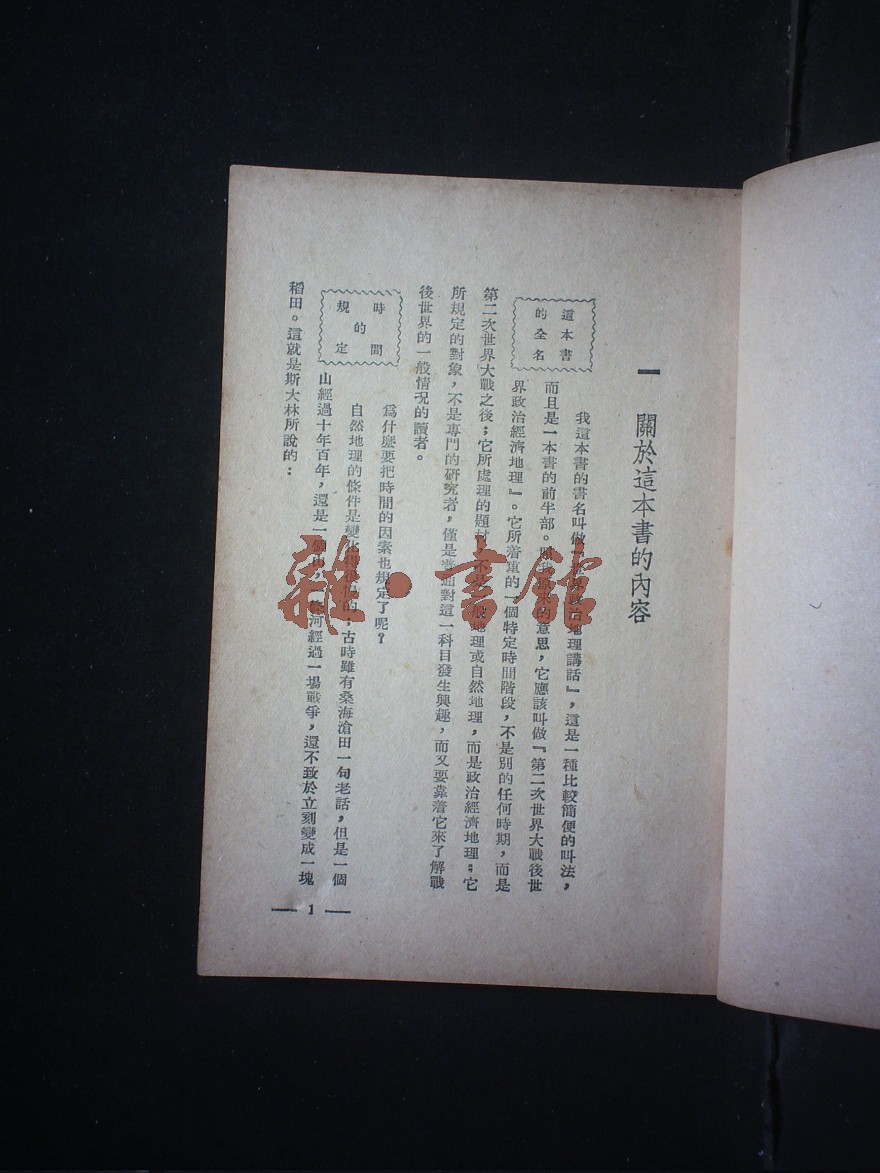 一 關於這本書的內容
這本書
的全名
我這本書的書名叫做『世界政治地理講話』，這是一種比較簡便的叫法，
而且是一本書的前半部。照我原來的意思，它應該叫做『第二次世界大戰後世
界政治經濟地理』。它所着重的一個特定時間階段，不是別的任何時期，而是
第二次世界大戰之後；它所處理的題材，不是一般地理或自然地理，而是政治經濟地理；它
所規定的對象，不是專門的研究者，僅是普通對這一科目發生興趣，而又要靠着它來了解戰
後世界的一般情況的讀者。
時間
的
規定
爲什麼要把時間的因素也規定了呢？
自然地理的條件是變化得很慢的；古時雖有桑海滄田一句老話，但是一個
山經過十年百年，還是一個山，一條河經過一場戰爭，還不致於立刻變成一塊
稻田。這就是斯大林所說的：
1
雜·書館